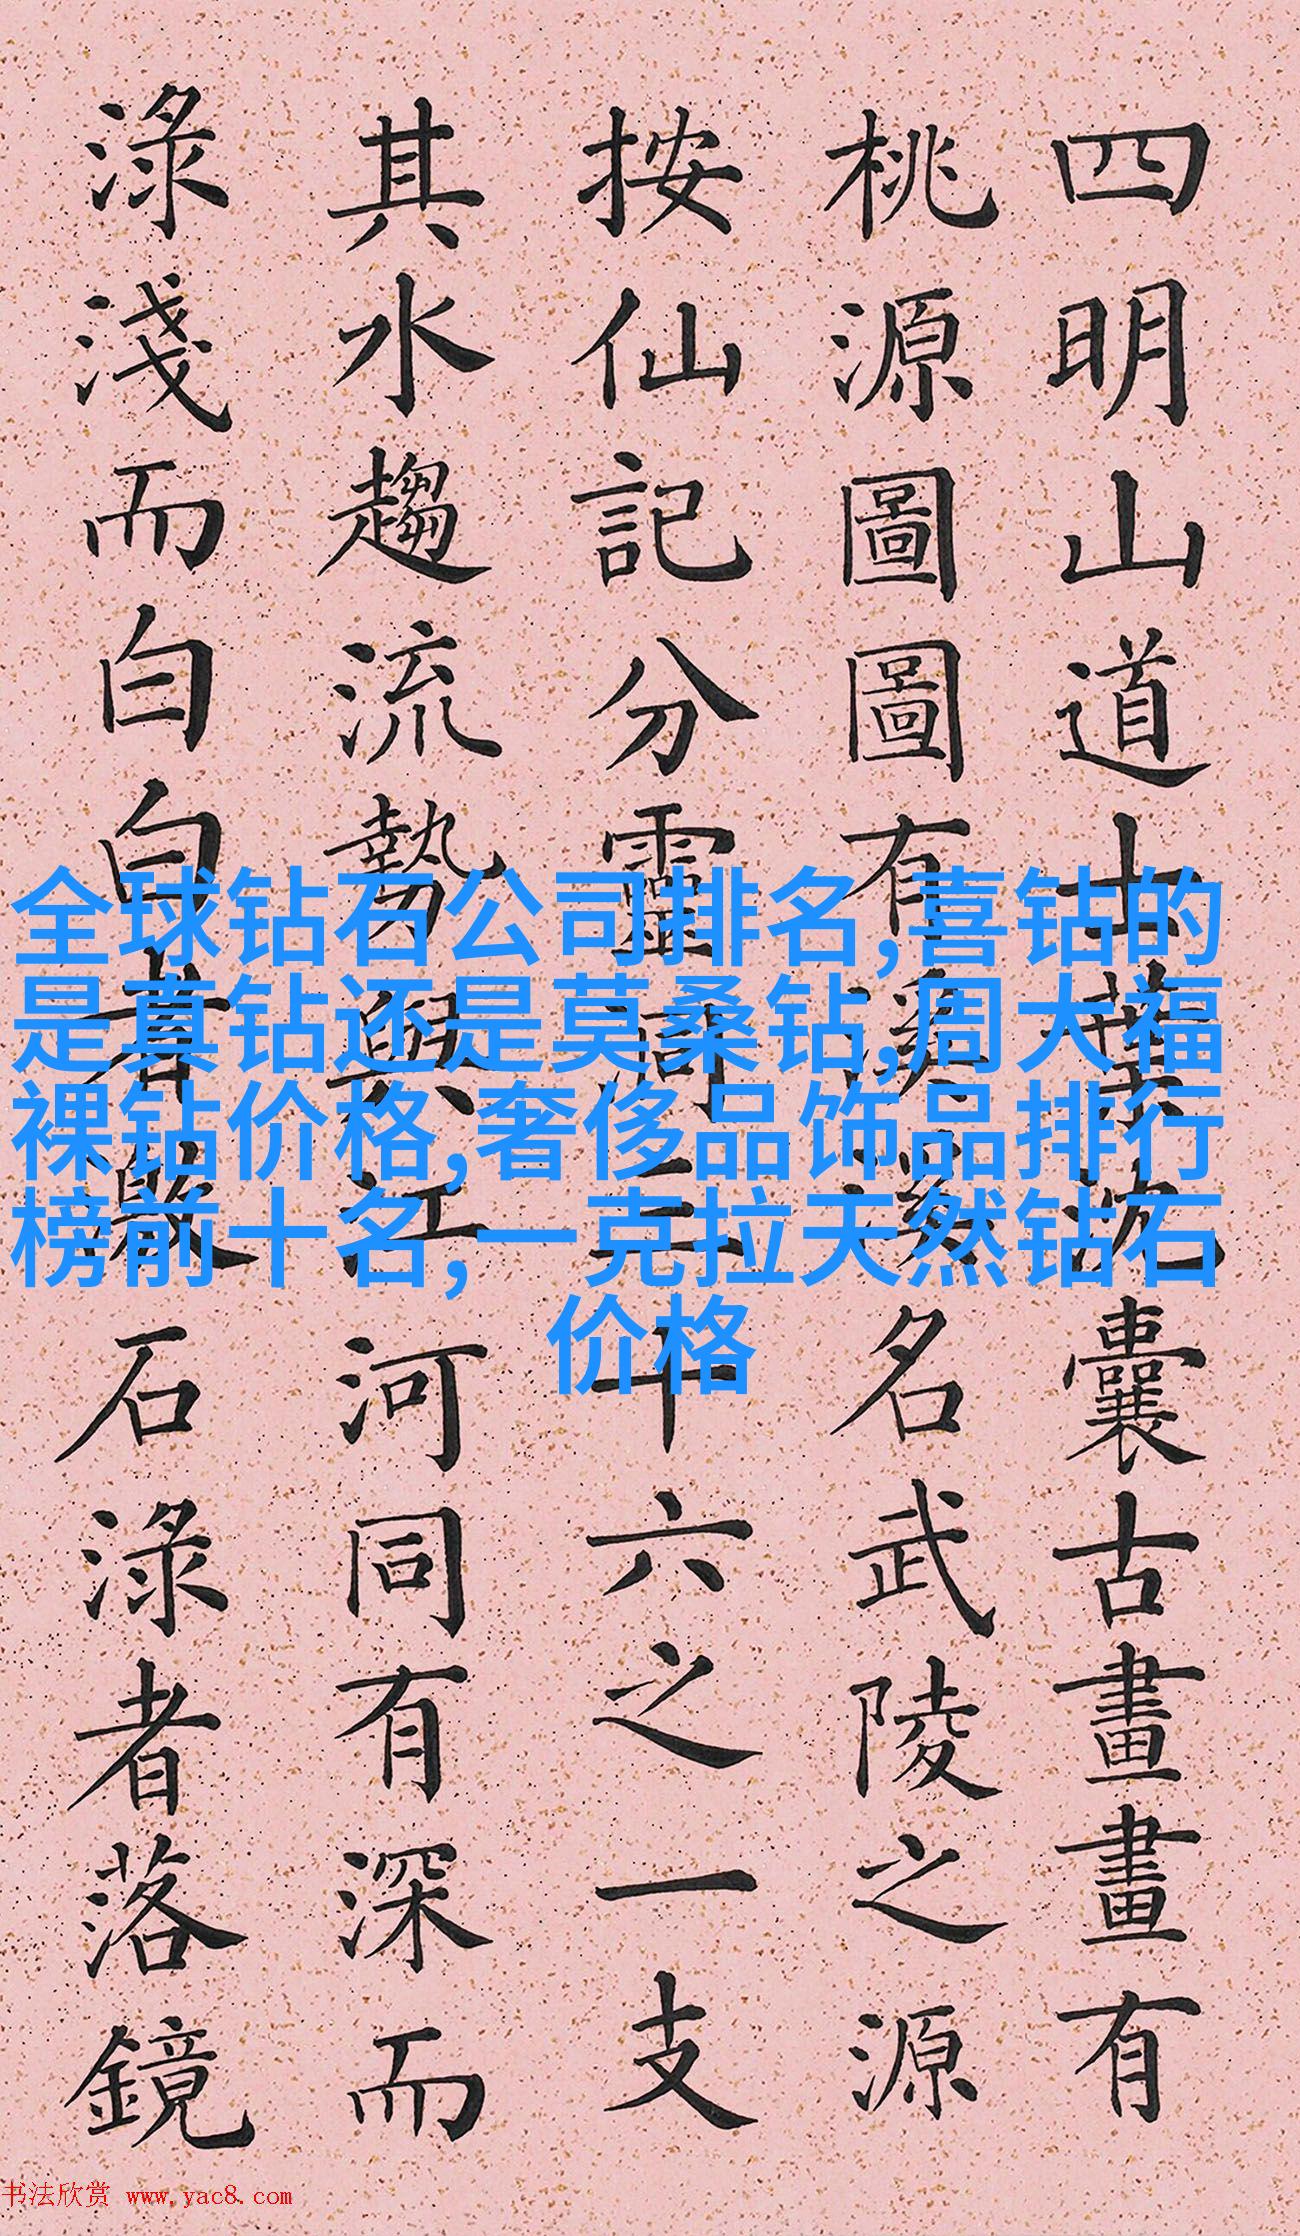 四明山道士葉沈囊古畫畫有
桃源圖圖有溪溪名武陵之源
按仙記分靈洞三十六之一支
其水趨流勢與江河同有深而
淥淺而白白者激石淥者落鏡
全球钻石公司排名,喜钻的
是真钻还是莫桑钻,周大福
裸钻价格,奢侈品饰品排行
榜前十名,一克拉天然钻石
价格
书法欣赏 www.yac8.com